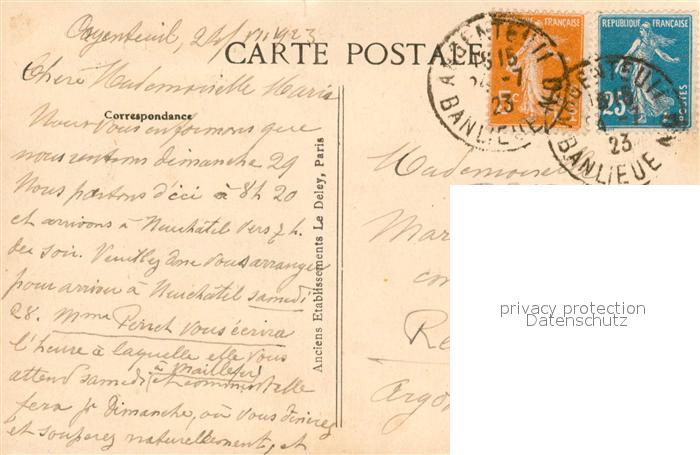 Argenteuil, 24/VII 1923
CARTE POSTALE
Chère Mademoiselle Marie
Correspondance
Nous vous informons que
nous rentrons dimanche 29
Nous partons d'ici à 8h 20
et arrivons à Neuchâtel vers 7 h.
du soir. Veuillez donc vous arranger
pour arriver à Neuchâtel samedi
28. Mme Perret vous écrira
l'heure à laquelle elle vous
attend samedi (à Maillefer) et comment elle
fera p. Dimanche, où vous dînerez
et souperez naturellement, et
Anciens Etablissements Le Deley, Paris
RÉPUBLIQUE FRANÇAISE
5c
25c
POSTES
ARGENTEUIL
15
23
BANLIEUE
ARGENTEUIL
23
BANLIEUE
Mademoiselle
Mar
Re
Argo
privacy protection
Datenschutz